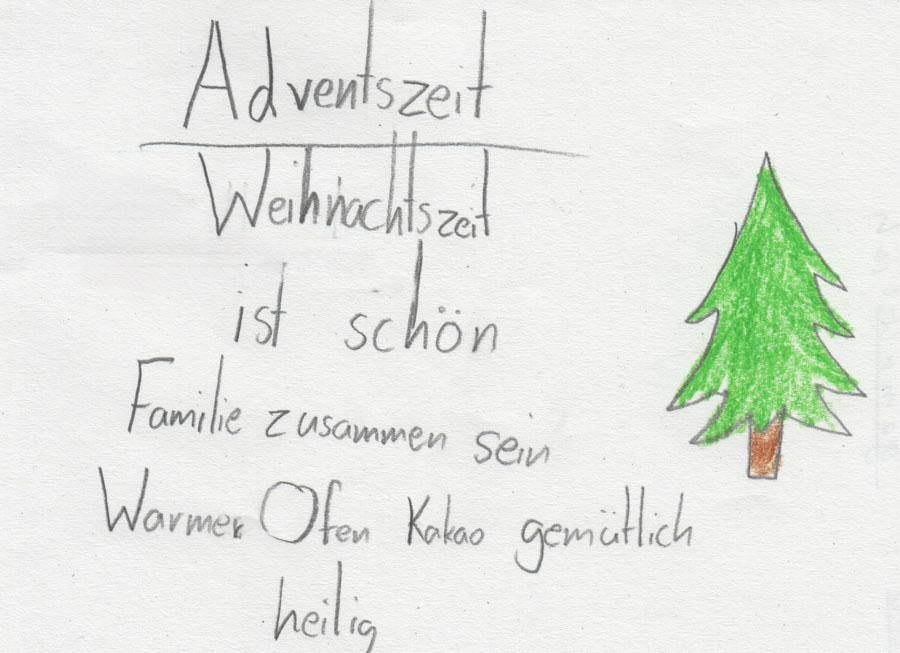 Adventszeit
Weihnachtszeit
ist schön
Familie zusammen sein
Warmer Ofen Kakao gemütlich
heilig